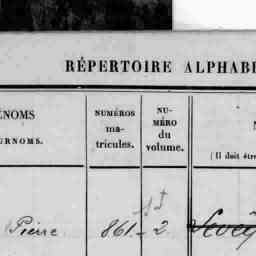 RÉPERTOIRE ALPHABÉ
ÉNOMS
URNOMS.
NUMÉROS
ma-
tricules.
NU-
MÉRO
du
volume.
(Il doit être
Pierre 861 - 2